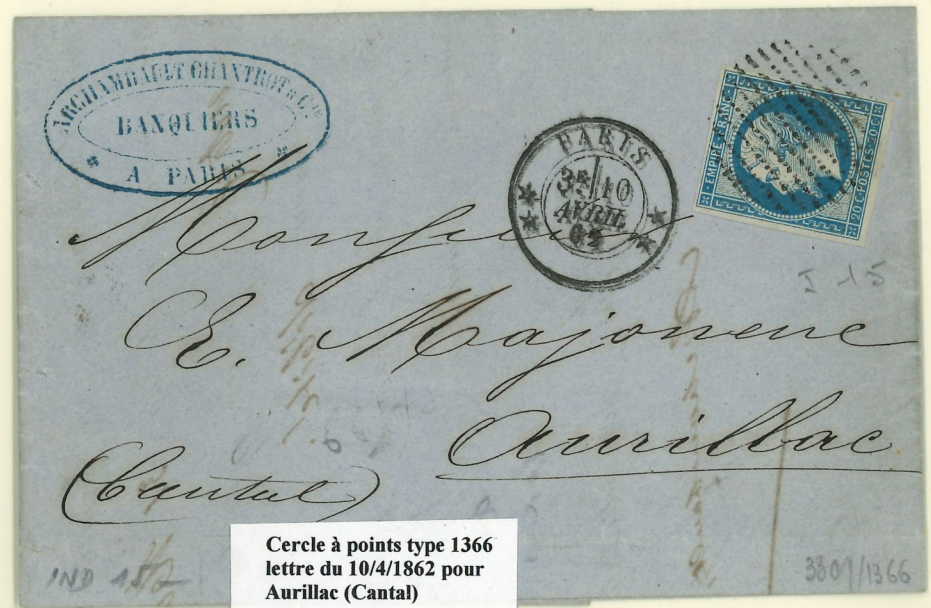 ARCHAMBAULT CHANTROT & Cie
BANQUIERS
* A PARIS *
PARIS
3E 10
AVRIL
62
EMPIRE FRANC.
20 C. POSTES 20 C.
Monsieur
E. Majonene
Aurillac
(Cantal)
J 15
IND 152
3309/1366
Cercle à points type 1366
lettre du 10/4/1862 pour
Aurillac (Cantal)